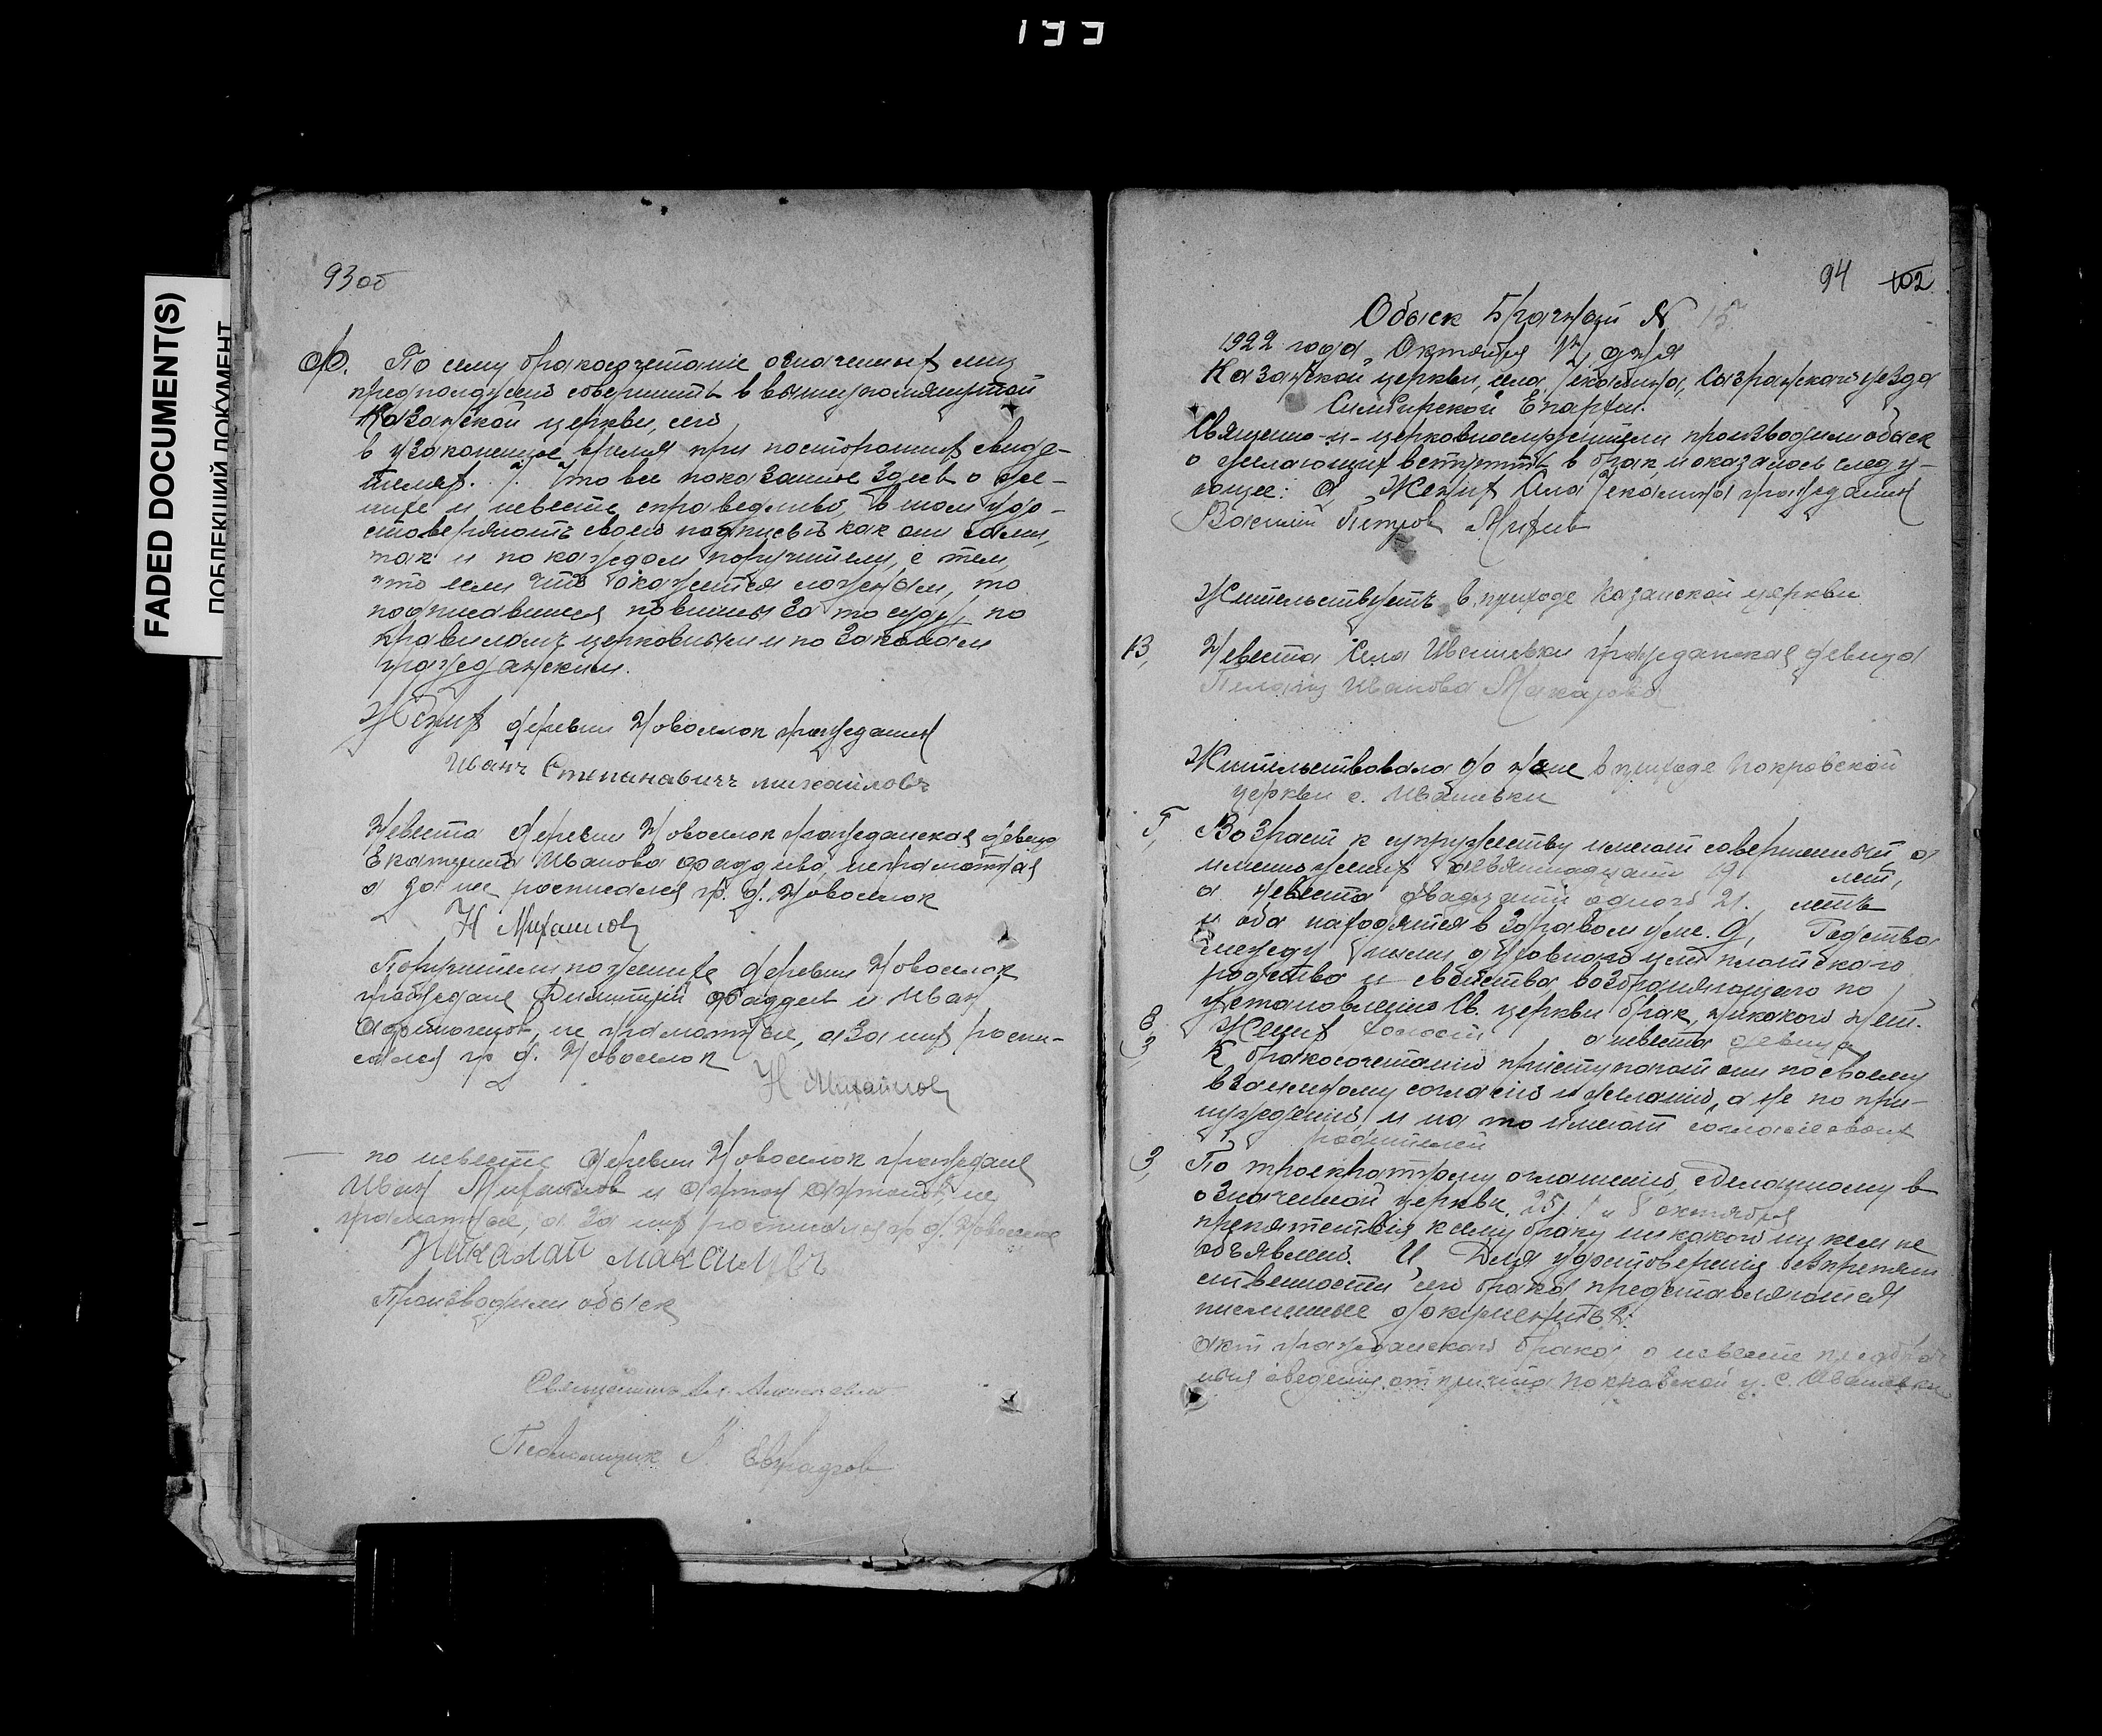 199
FADED DOCUMENT(S)
ПОБЛЕКШИЙ ДОКУМЕНТ
93об
Ѳ. По сему бракосочетаніе означенных лиц
предположено совершить в вышеупомянутой
Казанской церкви, сего
в узаконенное время при посторонних свиде-
телях. I. Что все показанное здесь о же-
нихе и невесте справедливо, в том удо-
стоверяют своею подписью как они сами,
так и по каждом поручители, с тем,
что если что окажется ложным, то
подписавшиеся повинны за то суду, по
правилам церковным и по законам
гражданским.
Жених деревни Новоселок гражданин
Иванъ Степанавичъ михайловъ
Невеста деревни Новоселок гражданская девица
Екатерина Иванова Фаддеева, неграмотная
а за нее росписался гр. д. Новоселок
Н Михайлов
Поручители по женихе деревни Новоселок
граждане Димитрий Фаддеев и Иван
не грамотные, а за них роспи-
сался гр д. Новоселок
Н Михайлов
по невесте деревни Новоселок граждане
Иван Михайлов и не
грамотные, а за них росписался гр д. Новоселок
Никалай
Производили обыск
Священник Ал.
Псаломщик
94 102
Обыск Брачный № 15
1922 года, Октября 12, дня
Казанской церкви, села Сызранского уезда
Симбирской Епархіи.
Священно-и-церковнослужители производили обыск
о желающих вступить в брак, и оказалось следу-
ющее: А, Жених Села гражданин
Василий Петров
Жительствуетъ в приходе Казанской церкви
В, Невеста Села Ивашевки гражданская девица
Иванова Макарова
Жительствовала до ныне в приходе Покровской
церкви с. Ивашевки
Г, Возраст к супружеству имеют совершенный, а
именно жених девятнадцати 19 лет,
а невеста двадцати одного 21. летъ
и оба находятся в здравом уме. Д, Родства
между ними духовного или плотского
родства и свойства, возбраняющего по
установлению Св. церкви брак, никакого нет.
Е, Жених холост а невеста девица
Ж, К бракосочетанию приступают они по своему
взаимному согласию и желанию, а не по при-
нуждению, и на то имеют согласие своих
родителей
З, По троекратному оглашению, сделанному в
означенной церкви, 25, 1 и 8 октября
препятствия к сему браку никакого ни кем не
объявлено. И, Для удостоверения безпрепят
ственности сего брака представляются
письменные документы:
акт гражданского брака о невесте предбрач
ныя сведения от причта Покровской ц. с. Ивашевки